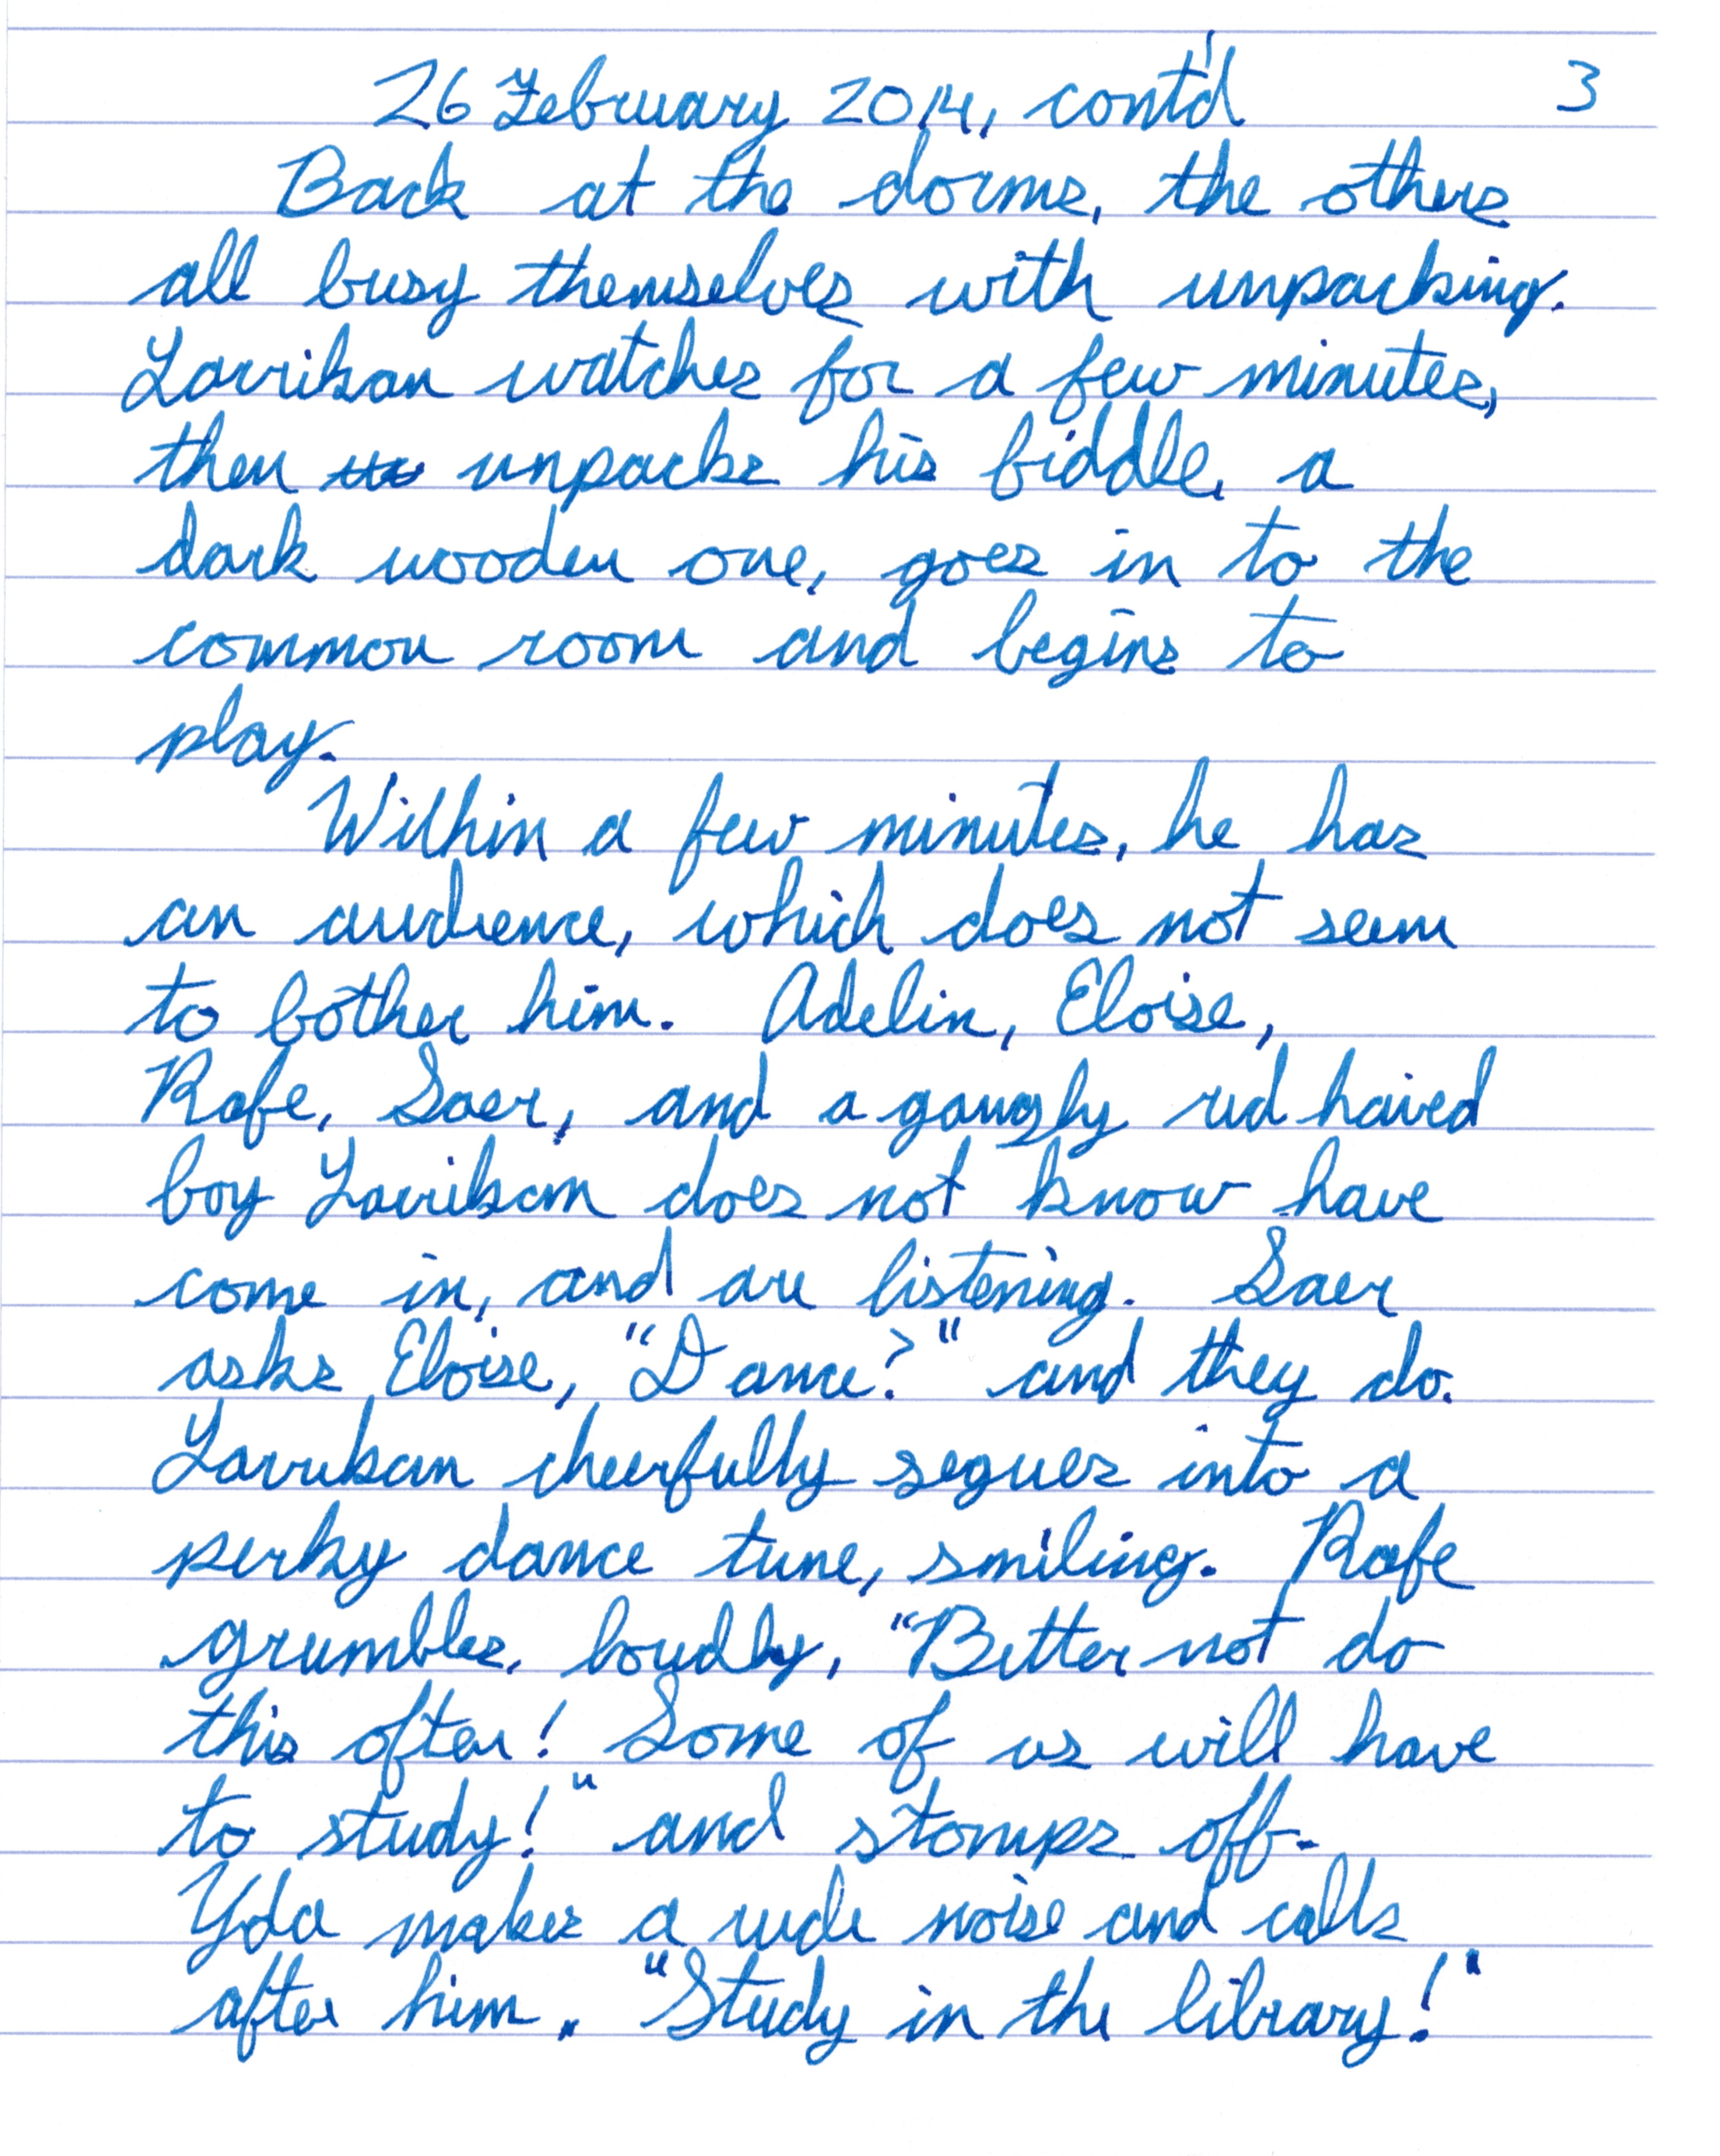 26 February 2014, cont'd 3
Back at the dorms, the others
all busy themselves with unpacking.
Larrikan watches for a few minutes,
then unpacks his fiddle, a
dark wooden one, goes in to the
common room and begins to
play.
Within a few minutes, he has
an audience, which does not seem
to bother him. Adelin, Eloise,
Rafe, Saer, and a gangly red haired
boy Larrikan does not know have
come in, and are listening. Saer
asks Eloise, "Dance?" and they do.
Larrikan cheerfully segues into a
perky dance tune, smiling. Rafe
grumbles, loudly, "Better not do
this often! Some of us will have
to study!" and stomps off.
Yda makes a rude noise and calls
after him, "Study in the library!"